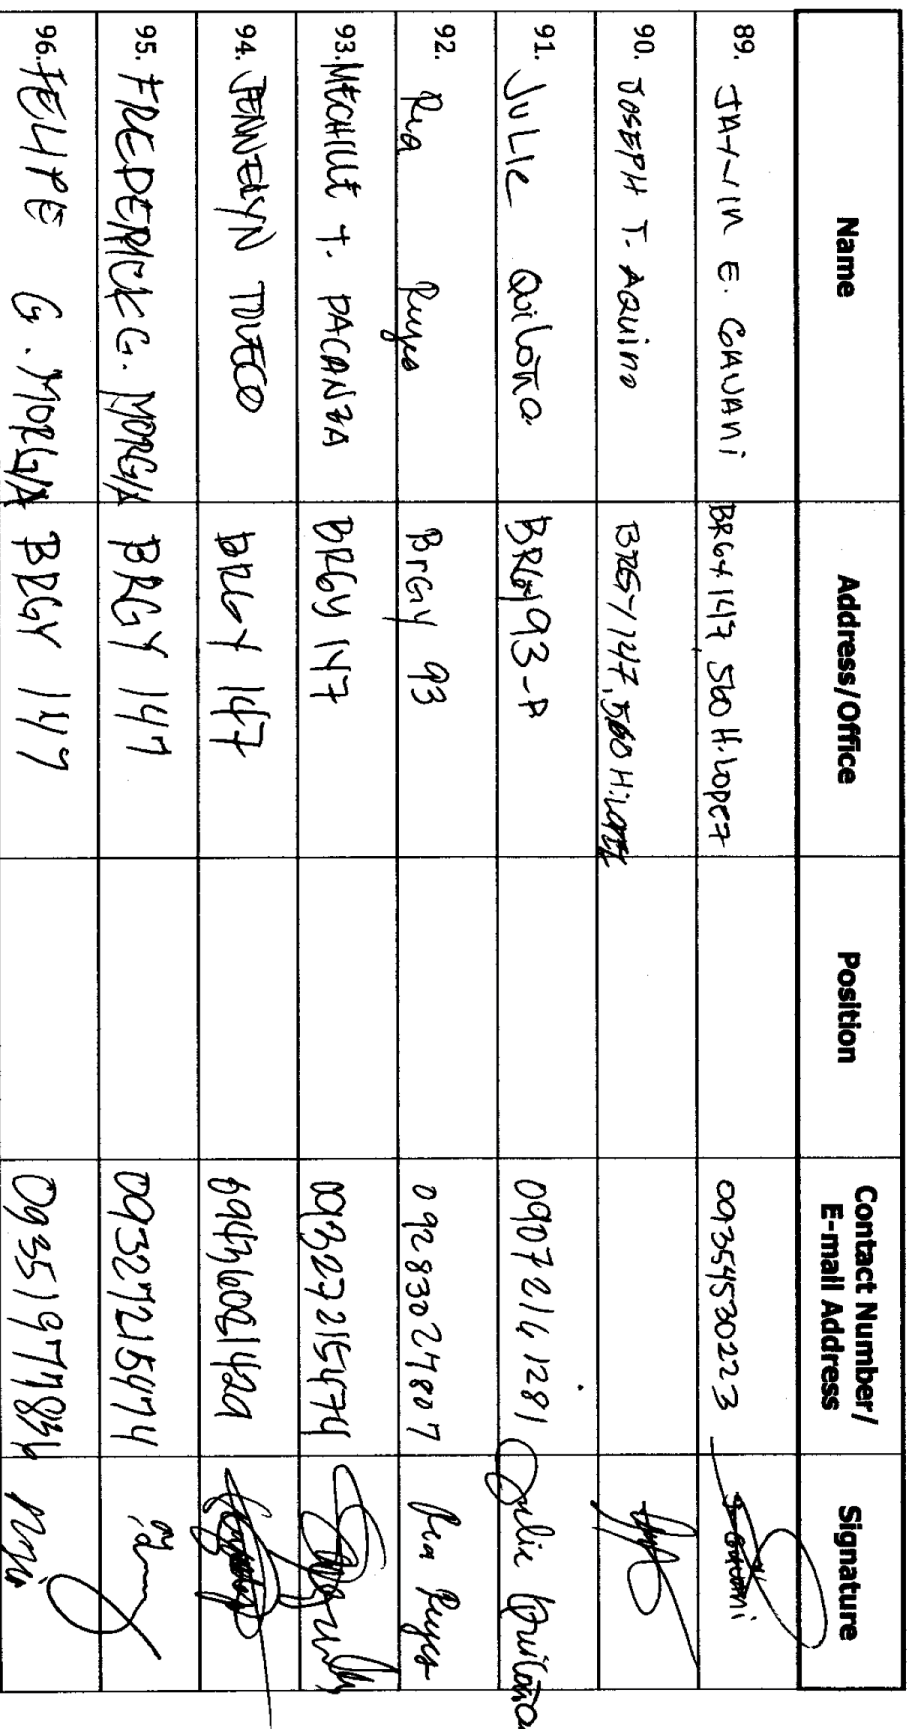 Name Address/Office Position Contact Number/ E-mail Address Signature
89. JAYVIN E. GAVANI BRGY 147, 560 H. Lopez 09354530223
90. JOSEPH T. AQUINO BRGY 147, 560 H. LOPEZ
91. JULIE Quiloña BRGY 93-A 09072161281 Julie Quiloña
92. Ria Reyes BrGy 93 09283024807 Ria Reyes
93. MECHILLE T. PACANZA BRGY 147 09327215474
94. JENNELYN TOLECO BRGY 147
95. FREDERICK G. MORGIA BRGY 147 09327215474
96. FELIPE G. MORGIA BRGY 147